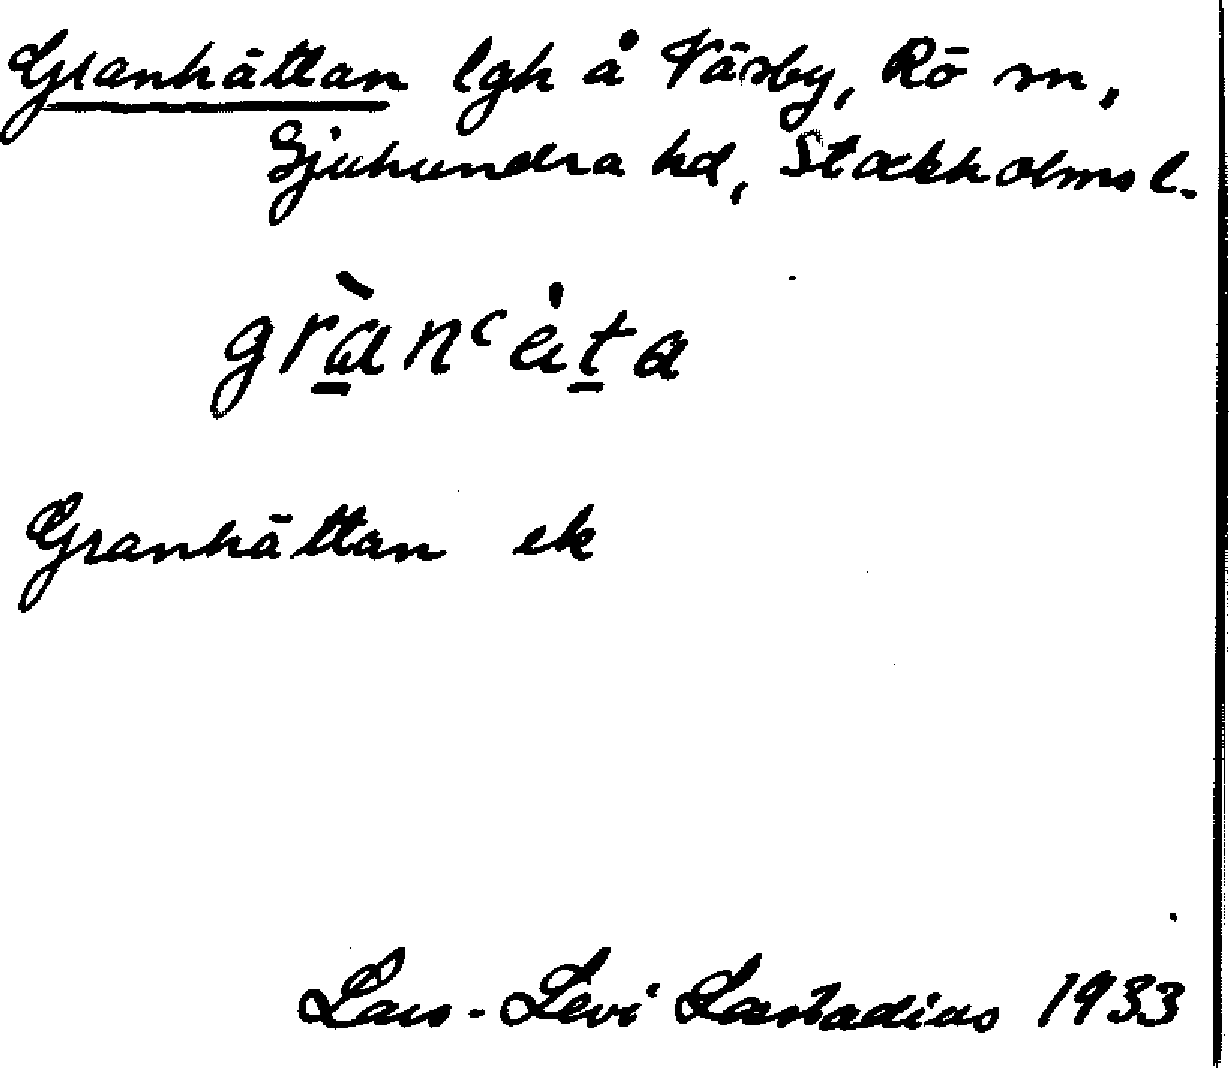 Granhättan lgh å Väsby, Rö sn,
Sjuhundra hd, Stockholms l.
grànʿàta
Granhättan ek
Lars-Levi Læstadius 1933